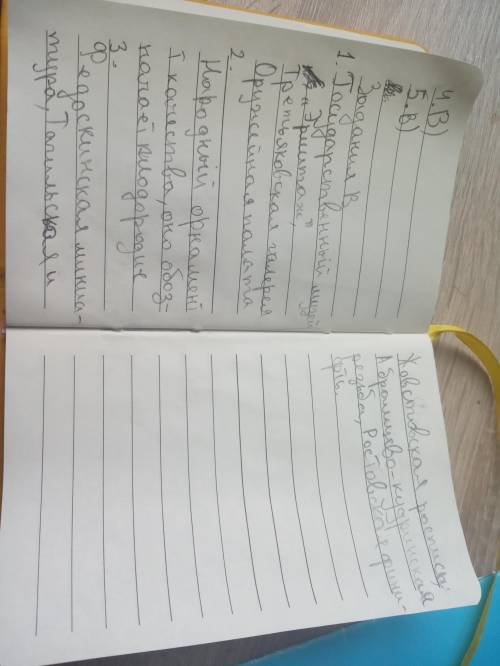 4.В)
5.В)
Задания В
1. Государственный музей
"Эрмитаж",
Третьяковская галерея
Оружейная палата
2.
Народный орнамент
1 качества, оно обоз-
начает плодородие
3.
Федоскинская миниа-
тюра, Тагильская и
Жовстовская роспись
Абрамцево-кудринская
резьба, Ростовская фини-
фть.